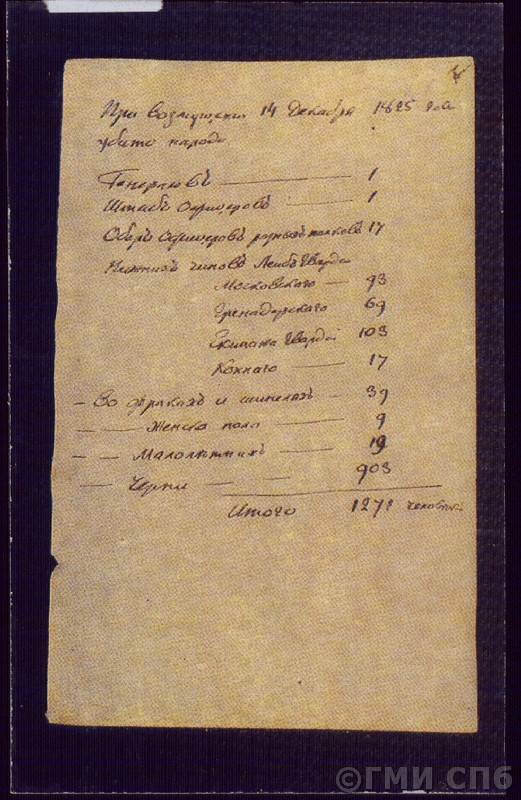 При возмущении 14 Декабря 1825 года
убито народа
Генераловъ — 1
Штабъ Офицеровъ — 1
Оберъ Офицеровъ разныхъ полковъ 17
Нижнихъ чиновъ Лейбъ Гвардіи
Московскаго — 93
Гренадерскаго 69
Екипажа Гвардіи 103
Коннаго — 17
— Во фракахъ и шинеляхъ — 39
— — Женска пола — 9
— — Малолѣтнихъ — 19
— Черни — — 903
Итого 1271 человѣкъ
©ГМИ СПб